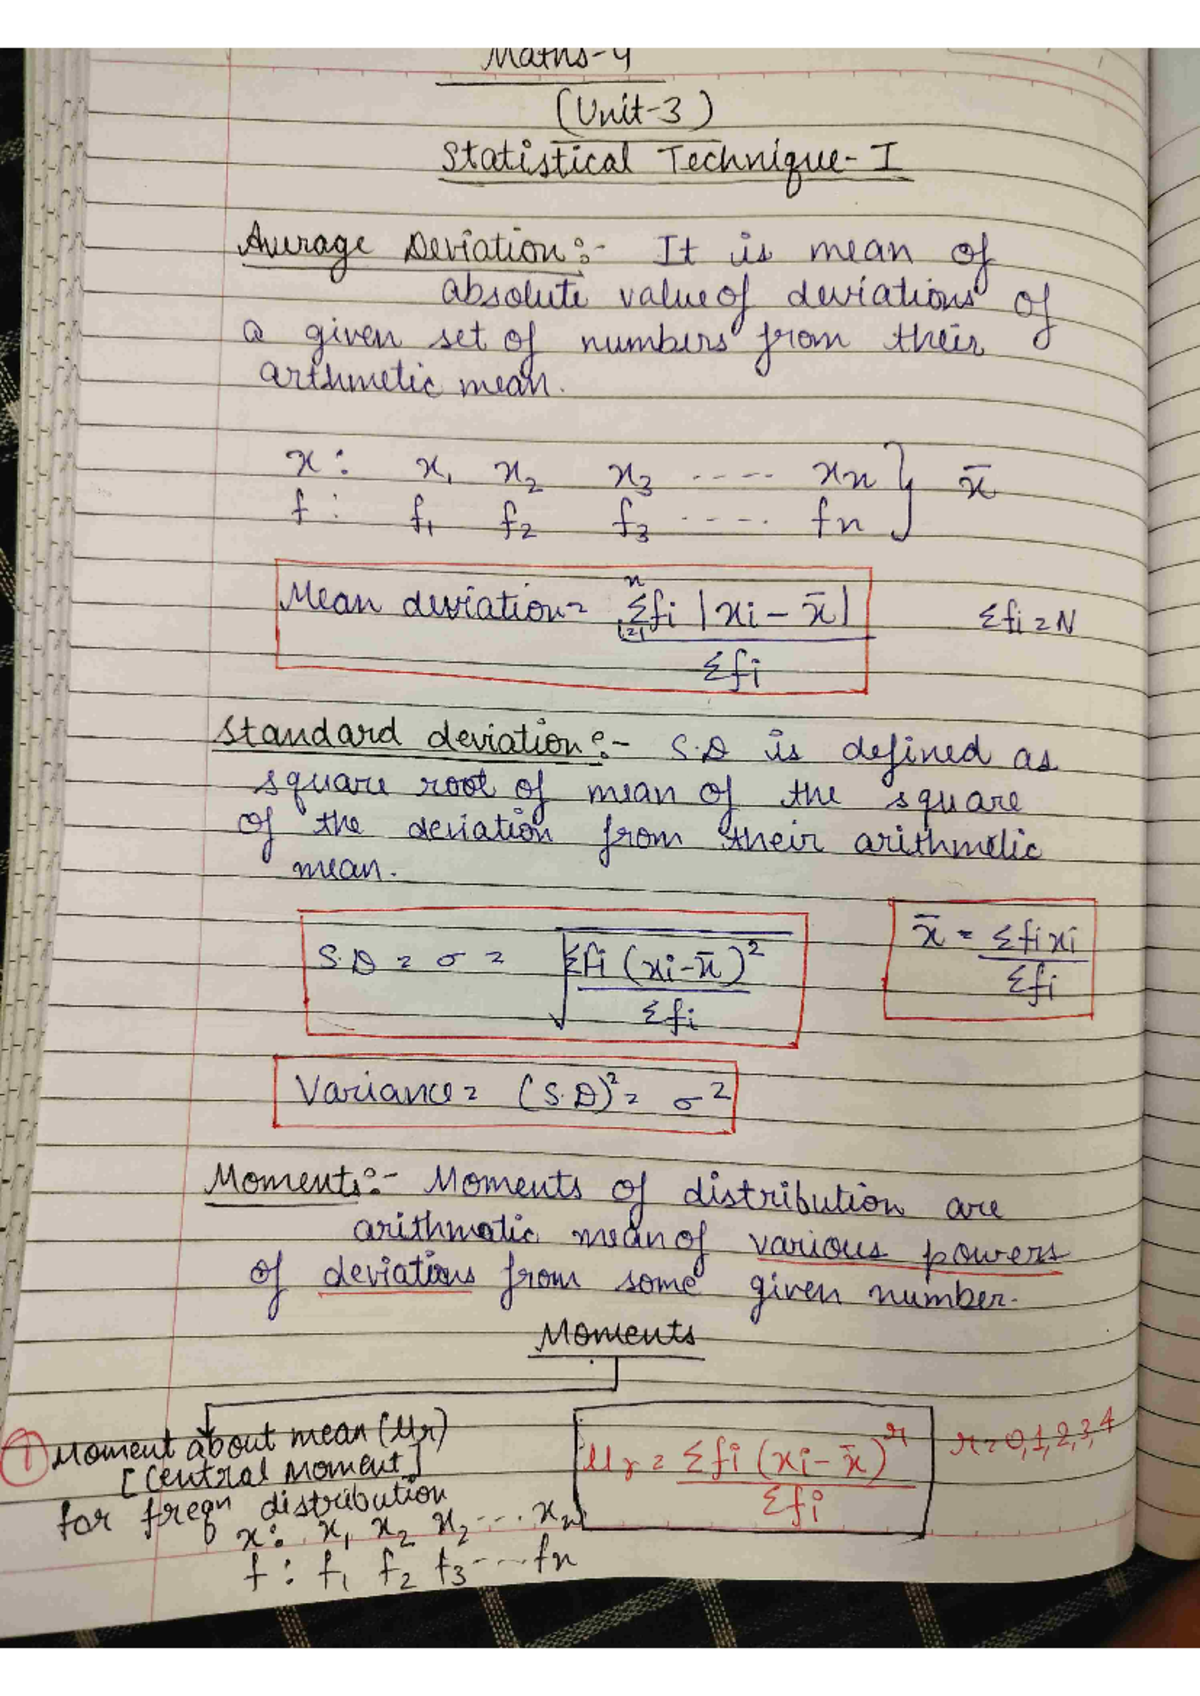 Maths-4
(Unit-3)
Statistical Technique-I
Average Deviation:- It is mean of
absolute value of deviations of
a given set of numbers from their
arthmetic mean.
x : x₁ x₂ x₃ ---- xn } x̄
f : f₁ f₂ f₃ ---- fn
Mean deviation = ⁿΣᵢ₌₁ fi |xi - x̄| / Σfi    Σfi = N
Standard deviation:- S.D is defined as
square root of mean of the square
of the deviation from their arithmetic
mean.
S.D = σ = √(Σfi (xi - x̄)² / Σfi)    x̄ = Σfixi / Σfi
Variance = (S.D)² = σ²
Moments:- Moments of distribution are
arithmatic mean of various powers
of deviations from some given number.
Moments
① Moment about mean (μr)
[Central Moment]
for freqn distribution
x: x₁ x₂ x₂ ... xn
f : f₁ f₂ f₃ ... fn
μr = Σfi (xi - x̄)ʳ / Σfi    r = 0,1,2,3,4